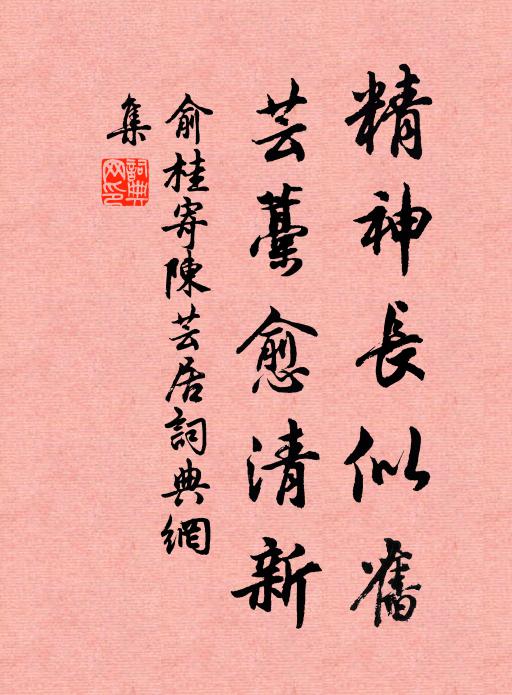 精神長似舊
芸藁愈清新
俞桂寄陳芸居詞典網
集
詞典網印